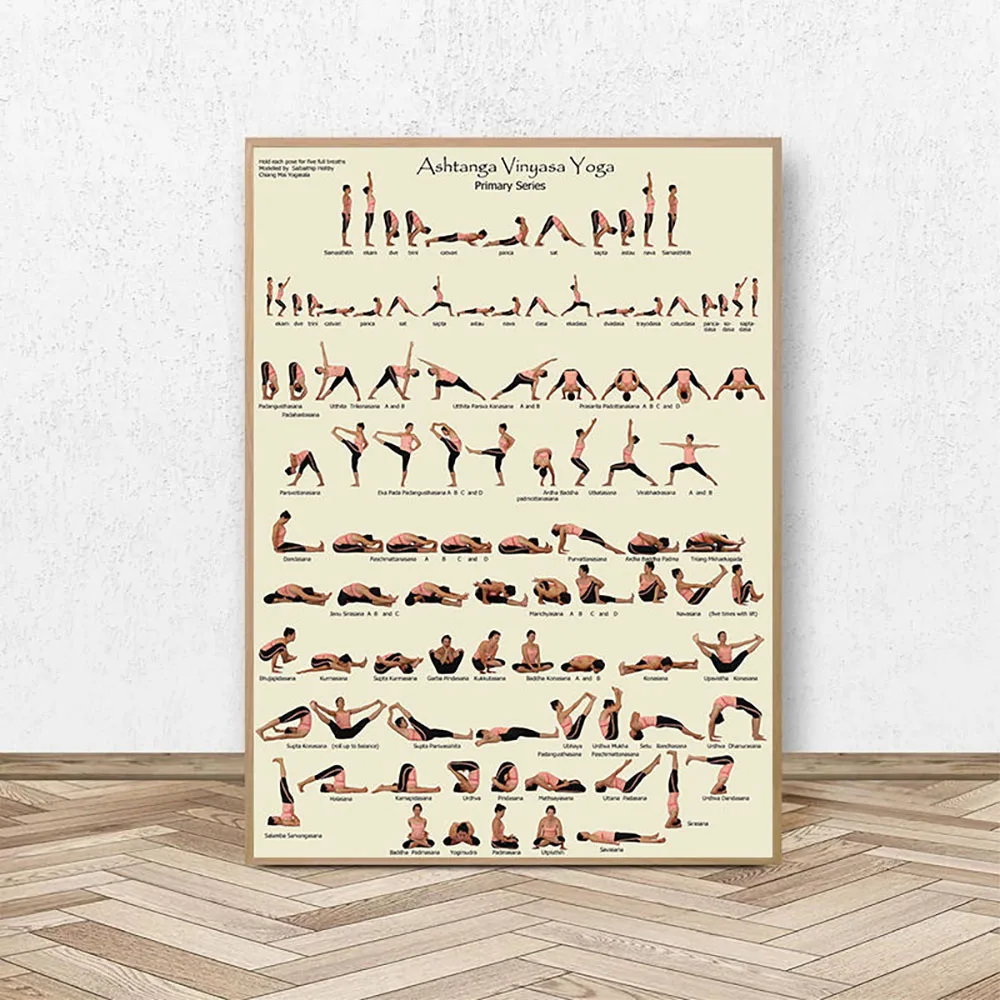 Hold each pose for five full breaths
Modelled by Saibaithip Holtby
Chiang Mai Yogasala
Ashtanga Vinyasa Yoga
Primary Series
Samasthitih ekam dve trini catvari panca sat sapta astau nava Samasthitih
ekam dve trini catvari panca sat sapta astau nava dasa ekadasa dvadasa trayodasa caturdasa panca-dasa so-dasa sapta-dasa
Padangusthasana Utthita Trikonasana A and B Utthita Parsva Konasana A and B Prasarita Padottanasana A B C and D
Padahastasana
Parsvottanasana Eka Pada Padangusthasana A B C and D Ardha Baddha Utkatasana Virabhadrasana A and B
padmottanasana
Dandasana Paschimattanasana A B C and D Purvattanasana Ardha Baddha Padma Triang Mukhaikapada
Janu Sirsasana A B and C Marichyasana A B C and D Navasana (five times with lift)
Bhujapidasana Kurmasana Supta Kurmasana Garba Pindasana Kukkutasana Baddha Konasana A and B Konasana Upavistha Konasana
Supta Konasana (roll up to balance) Supta Parsvasahita Ubhaya Urdhva Mukha Setu Bandhasana Urdhva Dhanurasana
Padangusthasana Paschimattanasana
Halasana Karnapidasana Urdhva Pindasana Mathsyasana Uttana Padasana Urdhva Dandasana
Salamba Sarvangasana Sirsasana
Baddha Padmasana Yogimudra Padmasana Utplutith Savasana